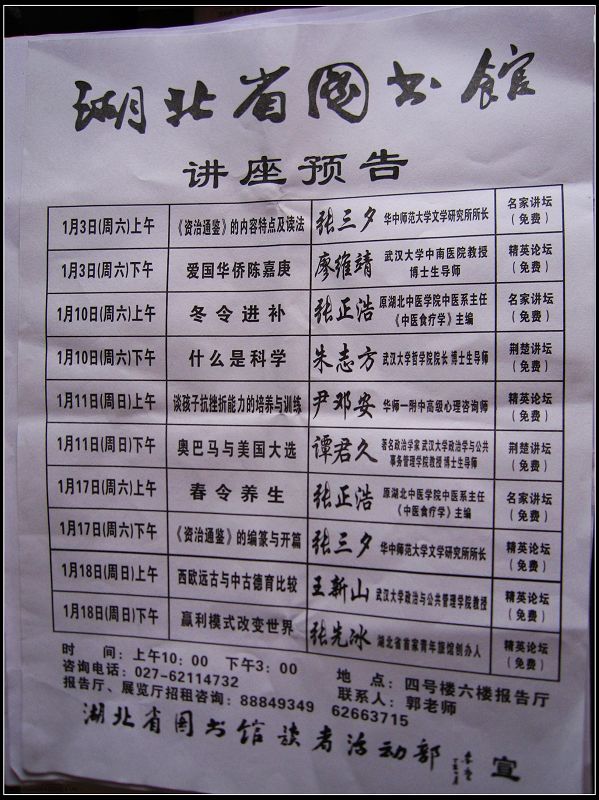 湖北省图书馆
讲座预告
1月3日(周六)上午 《资治通鉴》的内容特点及读法 张三夕 华中师范大学文学研究所所长 名家讲坛(免费)
1月3日(周六)下午 爱国华侨陈嘉庚 廖维靖 武汉大学中南医院教授 博士生导师 精英论坛(免费)
1月10日(周六)上午 冬令进补 张正浩 原湖北中医学院中医系主任 《中医食疗学》主编 名家讲坛(免费)
1月10日(周六)下午 什么是科学 朱志方 武汉大学哲学院院长 博士生导师 荆楚讲坛(免费)
1月11日(周日)上午 谈孩子抗挫折能力的培养与训练 尹邓安 华师一附中高级心理咨询师 精英论坛(免费)
1月11日(周日)下午 奥巴马与美国大选 谭君久 著名政治学家 武汉大学政治学与公共事务管理学院教授 博士生导师 荆楚讲坛(免费)
1月17日(周六)上午 春令养生 张正浩 原湖北中医学院中医系主任 《中医食疗学》主编 名家讲坛(免费)
1月17日(周六)下午 《资治通鉴》的编纂与开篇 张三夕 华中师范大学文学研究所所长 精英论坛(免费)
1月18日(周日)上午 西欧远古与中古德育比较 王新山 武汉大学政治与公共管理学院教授 精英论坛(免费)
1月18日(周日)下午 赢利模式改变世界 张先冰 湖北省首家青年旅馆创办人 精英论坛(免费)
时 间：上午10：00 下午3：00 地 点：四号楼六楼报告厅
咨询电话：027-62114732 联系人：郭老师
报告厅、展览厅招租咨询：88849349 62663715
湖北省图书馆读者活动部 宣